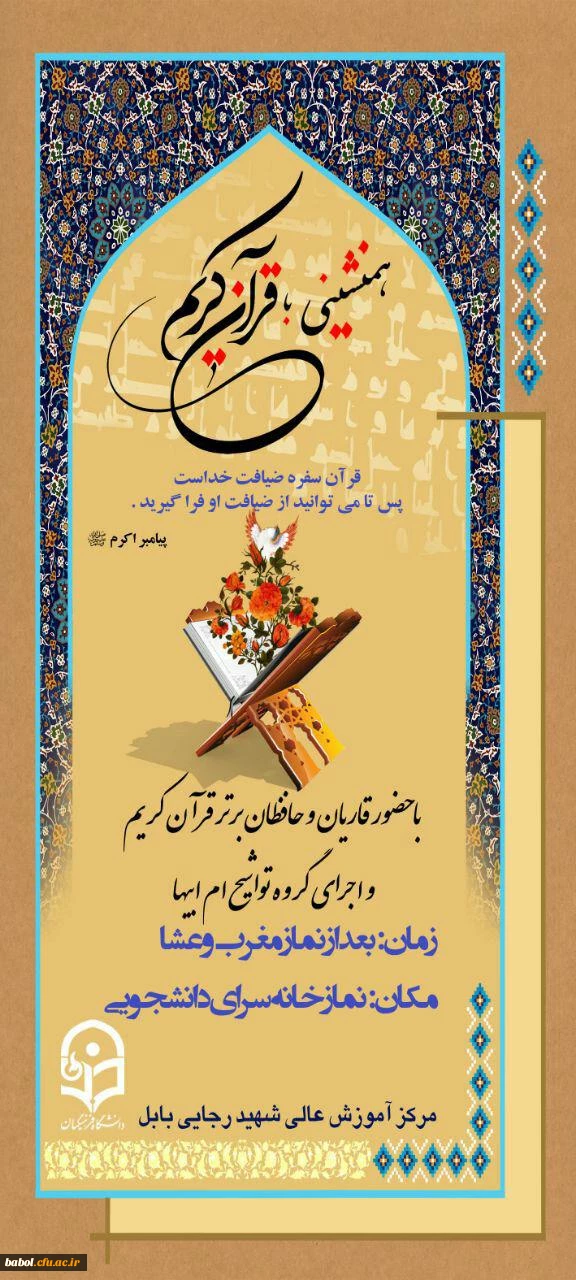 همنشینی با قرآن کریم
قرآن سفره ضیافت خداست
پس تا می توانید از ضیافت او فرا گیرید .
پیامبر اکرم ﷺ
با حضور قاریان و حافظان برتر قرآن کریم
و اجرای گروه تواشیح ام ابیها
زمان: بعد از نماز مغرب و عشا
مکان: نمازخانه سرای دانشجویی
دانشگاه فرهنگیان
مرکز آموزش عالی شهید رجایی بابل
babol.cfu.ac.ir